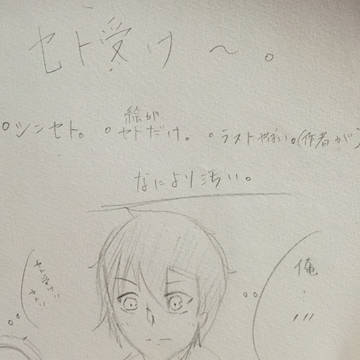 セト受け〜。
○シンセト。 ○絵がセトだけ。 ○ラストやばい。(作者が)
なにより汚い。
俺・・・